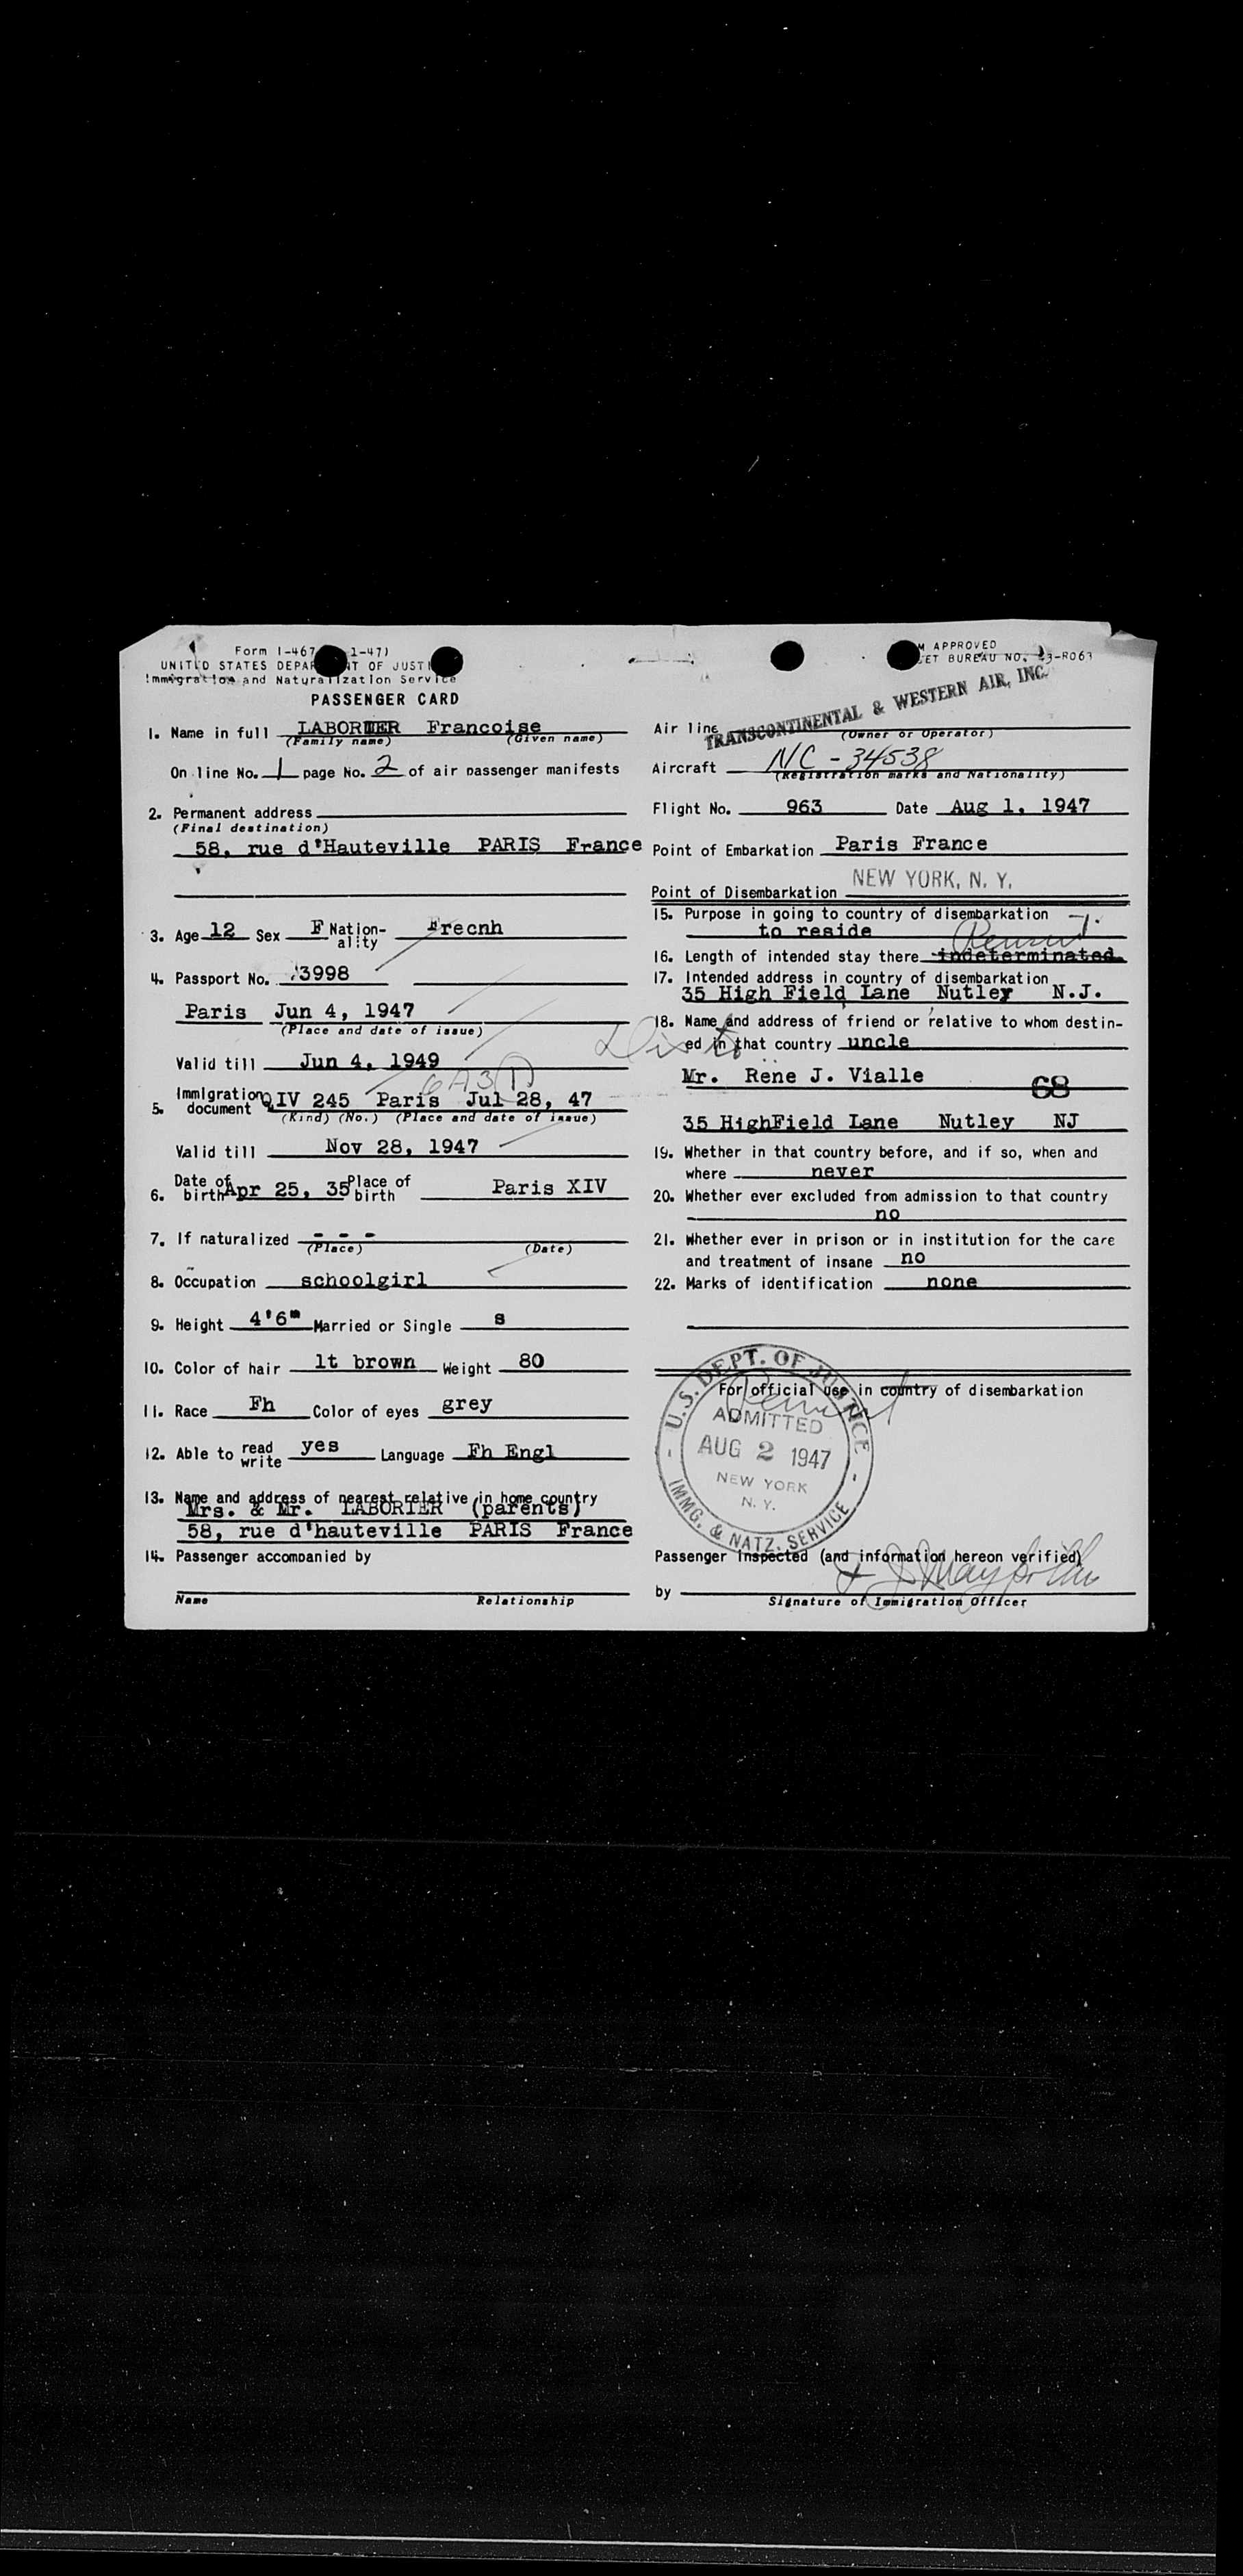 Form I-467 1-47)
UNITED STATES DEPAR NT OF JUSTI
Immigration and Naturalization Service
PASSENGER CARD
1. Name in full LABORIER Francoise
(Family name) (Given name)
On line No. 1 page No. 2 of air passenger manifests
2. Permanent address
(Final destination)
58, rue d'Hauteville PARIS France
3. Age 12 Sex F Nation-ality Frecnh
4. Passport No. 3998
Paris Jun 4, 1947
(Place and date of issue)
Valid till Jun 4, 1949
6A3 1)
5. Immigration document QIV 245 Paris Jul 28, 47
(Kind) (No.) (Place and date of issue)
Valid till Nov 28, 1947
6. Date of birth Apr 25, 35 Place of birth Paris XIV
7. If naturalized - - -
(Place) (Date)
8. Occupation schoolgirl
9. Height 4'6" Married or Single s
10. Color of hair lt brown Weight 80
11. Race Fh Color of eyes grey
12. Able to read write yes Language Fh Engl
13. Name and address of nearest relative in home country
Mrs. & Mr. LABORIER (parents)
58, rue d'hauteville PARIS France
14. Passenger accompanied by
Name Relationship
M APPROVED
ET BUREAU NO. 43-R063
Air line TRANSCONTINENTAL & WESTERN AIR, INC.
(Owner or Operator)
Aircraft NC-34538
(Registration marks and Nationality)
Flight No. 963 Date Aug 1, 1947
Point of Embarkation Paris France
Point of Disembarkation NEW YORK, N. Y.
15. Purpose in going to country of disembarkation
to reside
16. Length of intended stay there indeterminated
17. Intended address in country of disembarkation
35 High Field Lane Nutley N.J.
18. Name and address of friend or relative to whom destin-
ed in that country uncle
Mr. Rene J. Vialle
68
35 HighField Lane Nutley NJ
19. Whether in that country before, and if so, when and
where never
20. Whether ever excluded from admission to that country
no
21. Whether ever in prison or in institution for the care
and treatment of insane no
22. Marks of identification none
For official use in country of disembarkation
U.S. DEPT. OF JUSTICE
ADMITTED
AUG 2 1947
NEW YORK
N. Y.
IMMG. & NATZ. SERVICE
Passenger Inspected (and information hereon verified)
by
Signature of Immigration Officer